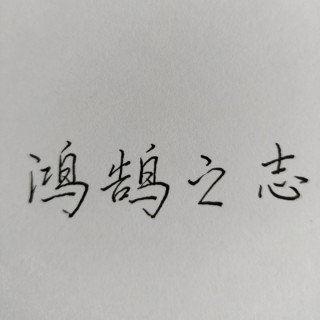 鸿鹄之志